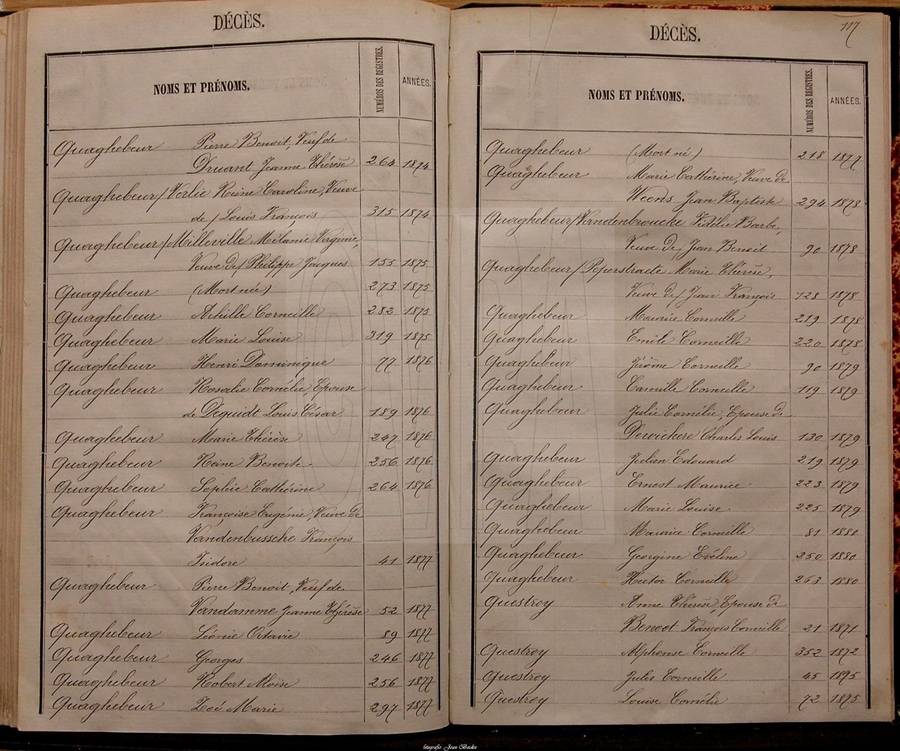 DÉCÈS.
NOMS ET PRÉNOMS. NUMÉROS DES REGISTRES. ANNÉES.
Quaghebeur Pierre Benoit, Veuf de
Druant Jeanne Thérèse 264 1874
Quaghebeur / Verlie Reine Caroline, Veuve
de / Louis François 315 1874
Quaghebeur / Milleville Mélanie Virginie,
Veuve de / Philippe Jacques 155 1875
Quaghebeur (Mort né) 273 1875
Quaghebeur Achille Corneille 282 1875
Quaghebeur Marie Louise 319 1875
Quaghebeur Henri Dominique 77 1876
Quaghebeur Rosalie Cornélie, Epouse
de Dequidt Louis César 189 1876
Quaghebeur Marie Thérèse 247 1876
Quaghebeur Reine Benoite 256 1876
Quaghebeur Sophie Cathérine 264 1876
Quaghebeur Françoise Eugénie, Veuve de
Vandenbussche François
Isidore 41 1877
Quaghebeur Pierre Benoit, Veuf de
Vandamme Jeanne Thérèse 52 1877
Quaghebeur Léonie Octavie 89 1877
Quaghebeur Georges 246 1877
Quaghebeur Robert Moïse 256 1877
Quaghebeur Zoé Marie 297 1877
117
DÉCÈS.
NOMS ET PRÉNOMS. NUMÉROS DES REGISTRES. ANNÉES.
Quaghebeur (Mort né) 218 1877
Quaghebeur Marie Cathérine, Veuve de
Weens Jean Baptiste 294 1878
Quaghebeur / Vandenbroucke Fidélie Barbe,
Veuve de / Jean Benoit 90 1878
Quaghebeur / Marie Thérèse,
Veuve de / Jean François 128 1878
Quaghebeur Maurice Corneille 219 1878
Quaghebeur Emile Corneille 220 1878
Quaghebeur Jérôme Corneille 90 1879
Quaghebeur Camille Corneille 119 1879
Quaghebeur Julie Cornélie, Epouse de
Dewickere Charles Louis 130 1879
Quaghebeur Julien Edouard 219 1879
Quaghebeur Ernest Maurice 223 1879
Quaghebeur Marie Louise 225 1879
Quaghebeur Maurice Corneille 81 1880
Quaghebeur Georgine Eveline 250 1880
Quaghebeur Hector Corneille 263 1880
Questroy Anne Thérèse, Epouse de
Benoot François Corneille 21 1871
Questroy Alphonse Corneille 352 1872
Questroy Jules Corneille 45 1875
Questroy Louise Cornélie 72 1875
fotografie Jean Beele